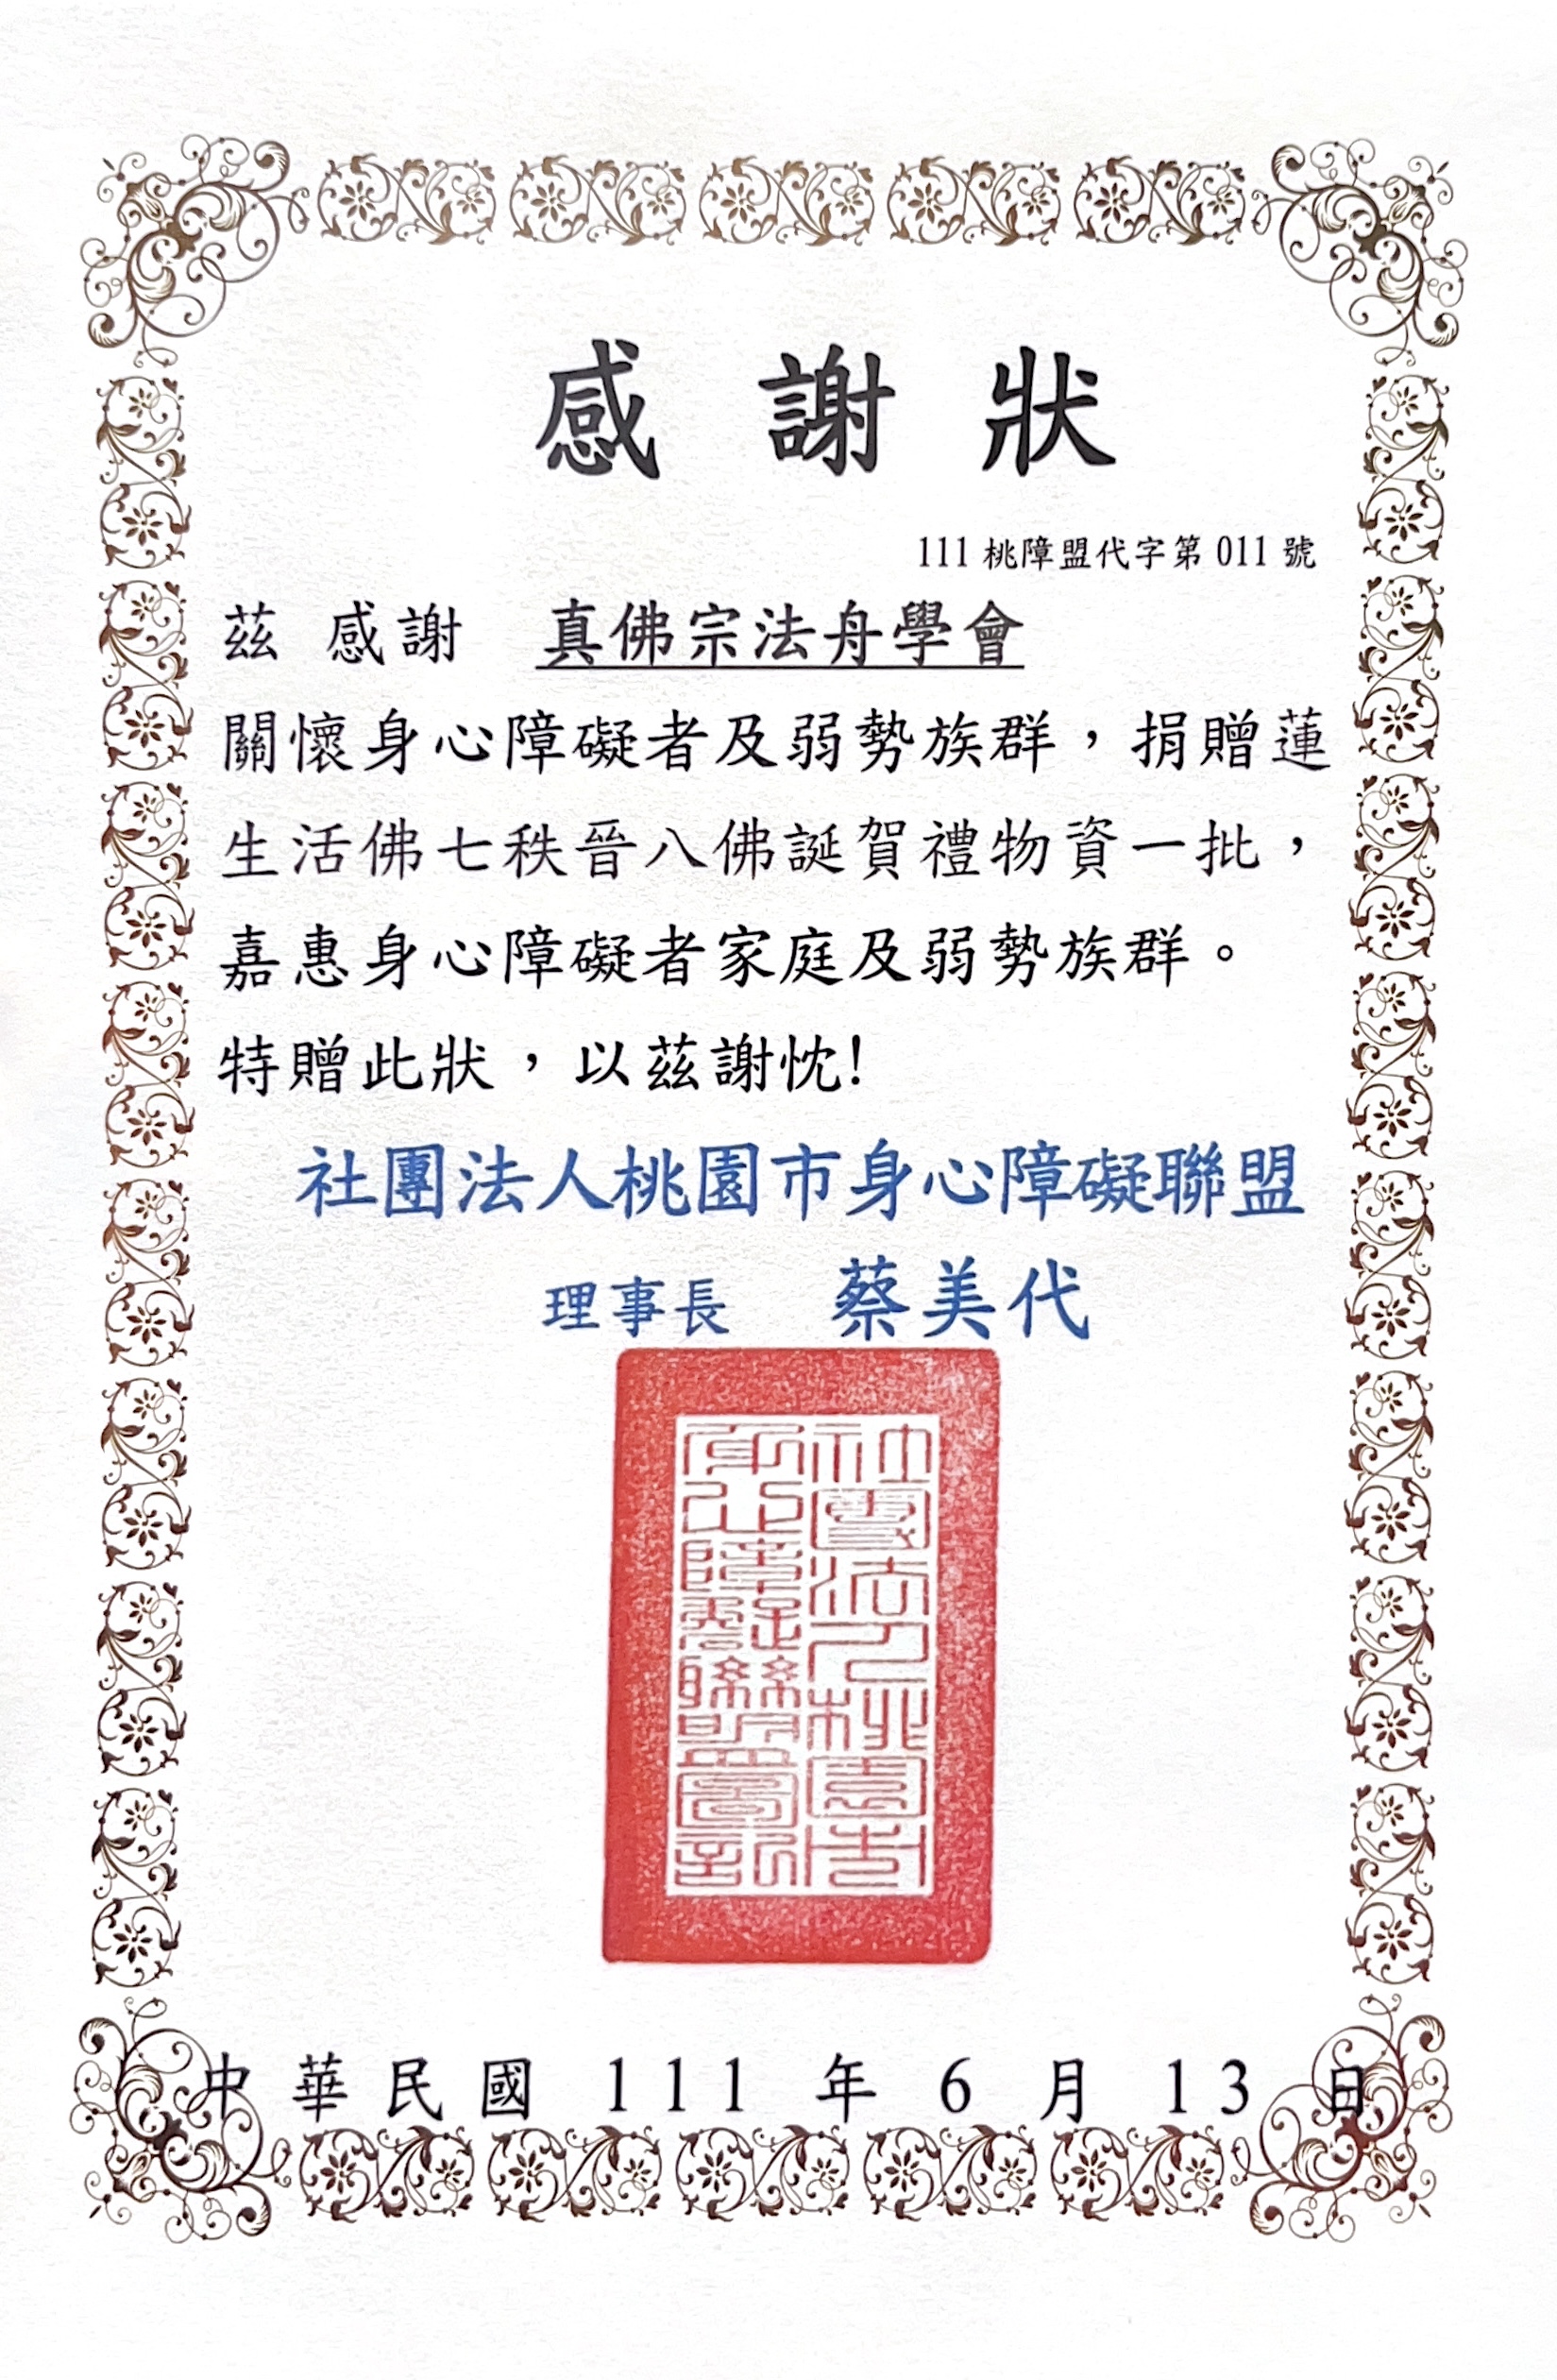 感謝狀
111 桃障盟代字第 011 號
茲 感謝 真佛宗法舟學會
關懷身心障礙者及弱勢族群，捐贈蓮
生活佛七秩晉八佛誕賀禮物資一批，
嘉惠身心障礙者家庭及弱勢族群。
特贈此狀，以茲謝忱!
社團法人桃園市身心障礙聯盟
理事長 蔡美代
社團法人桃園市
身心障礙聯盟圖記
中華民國 111 年 6 月 13 日